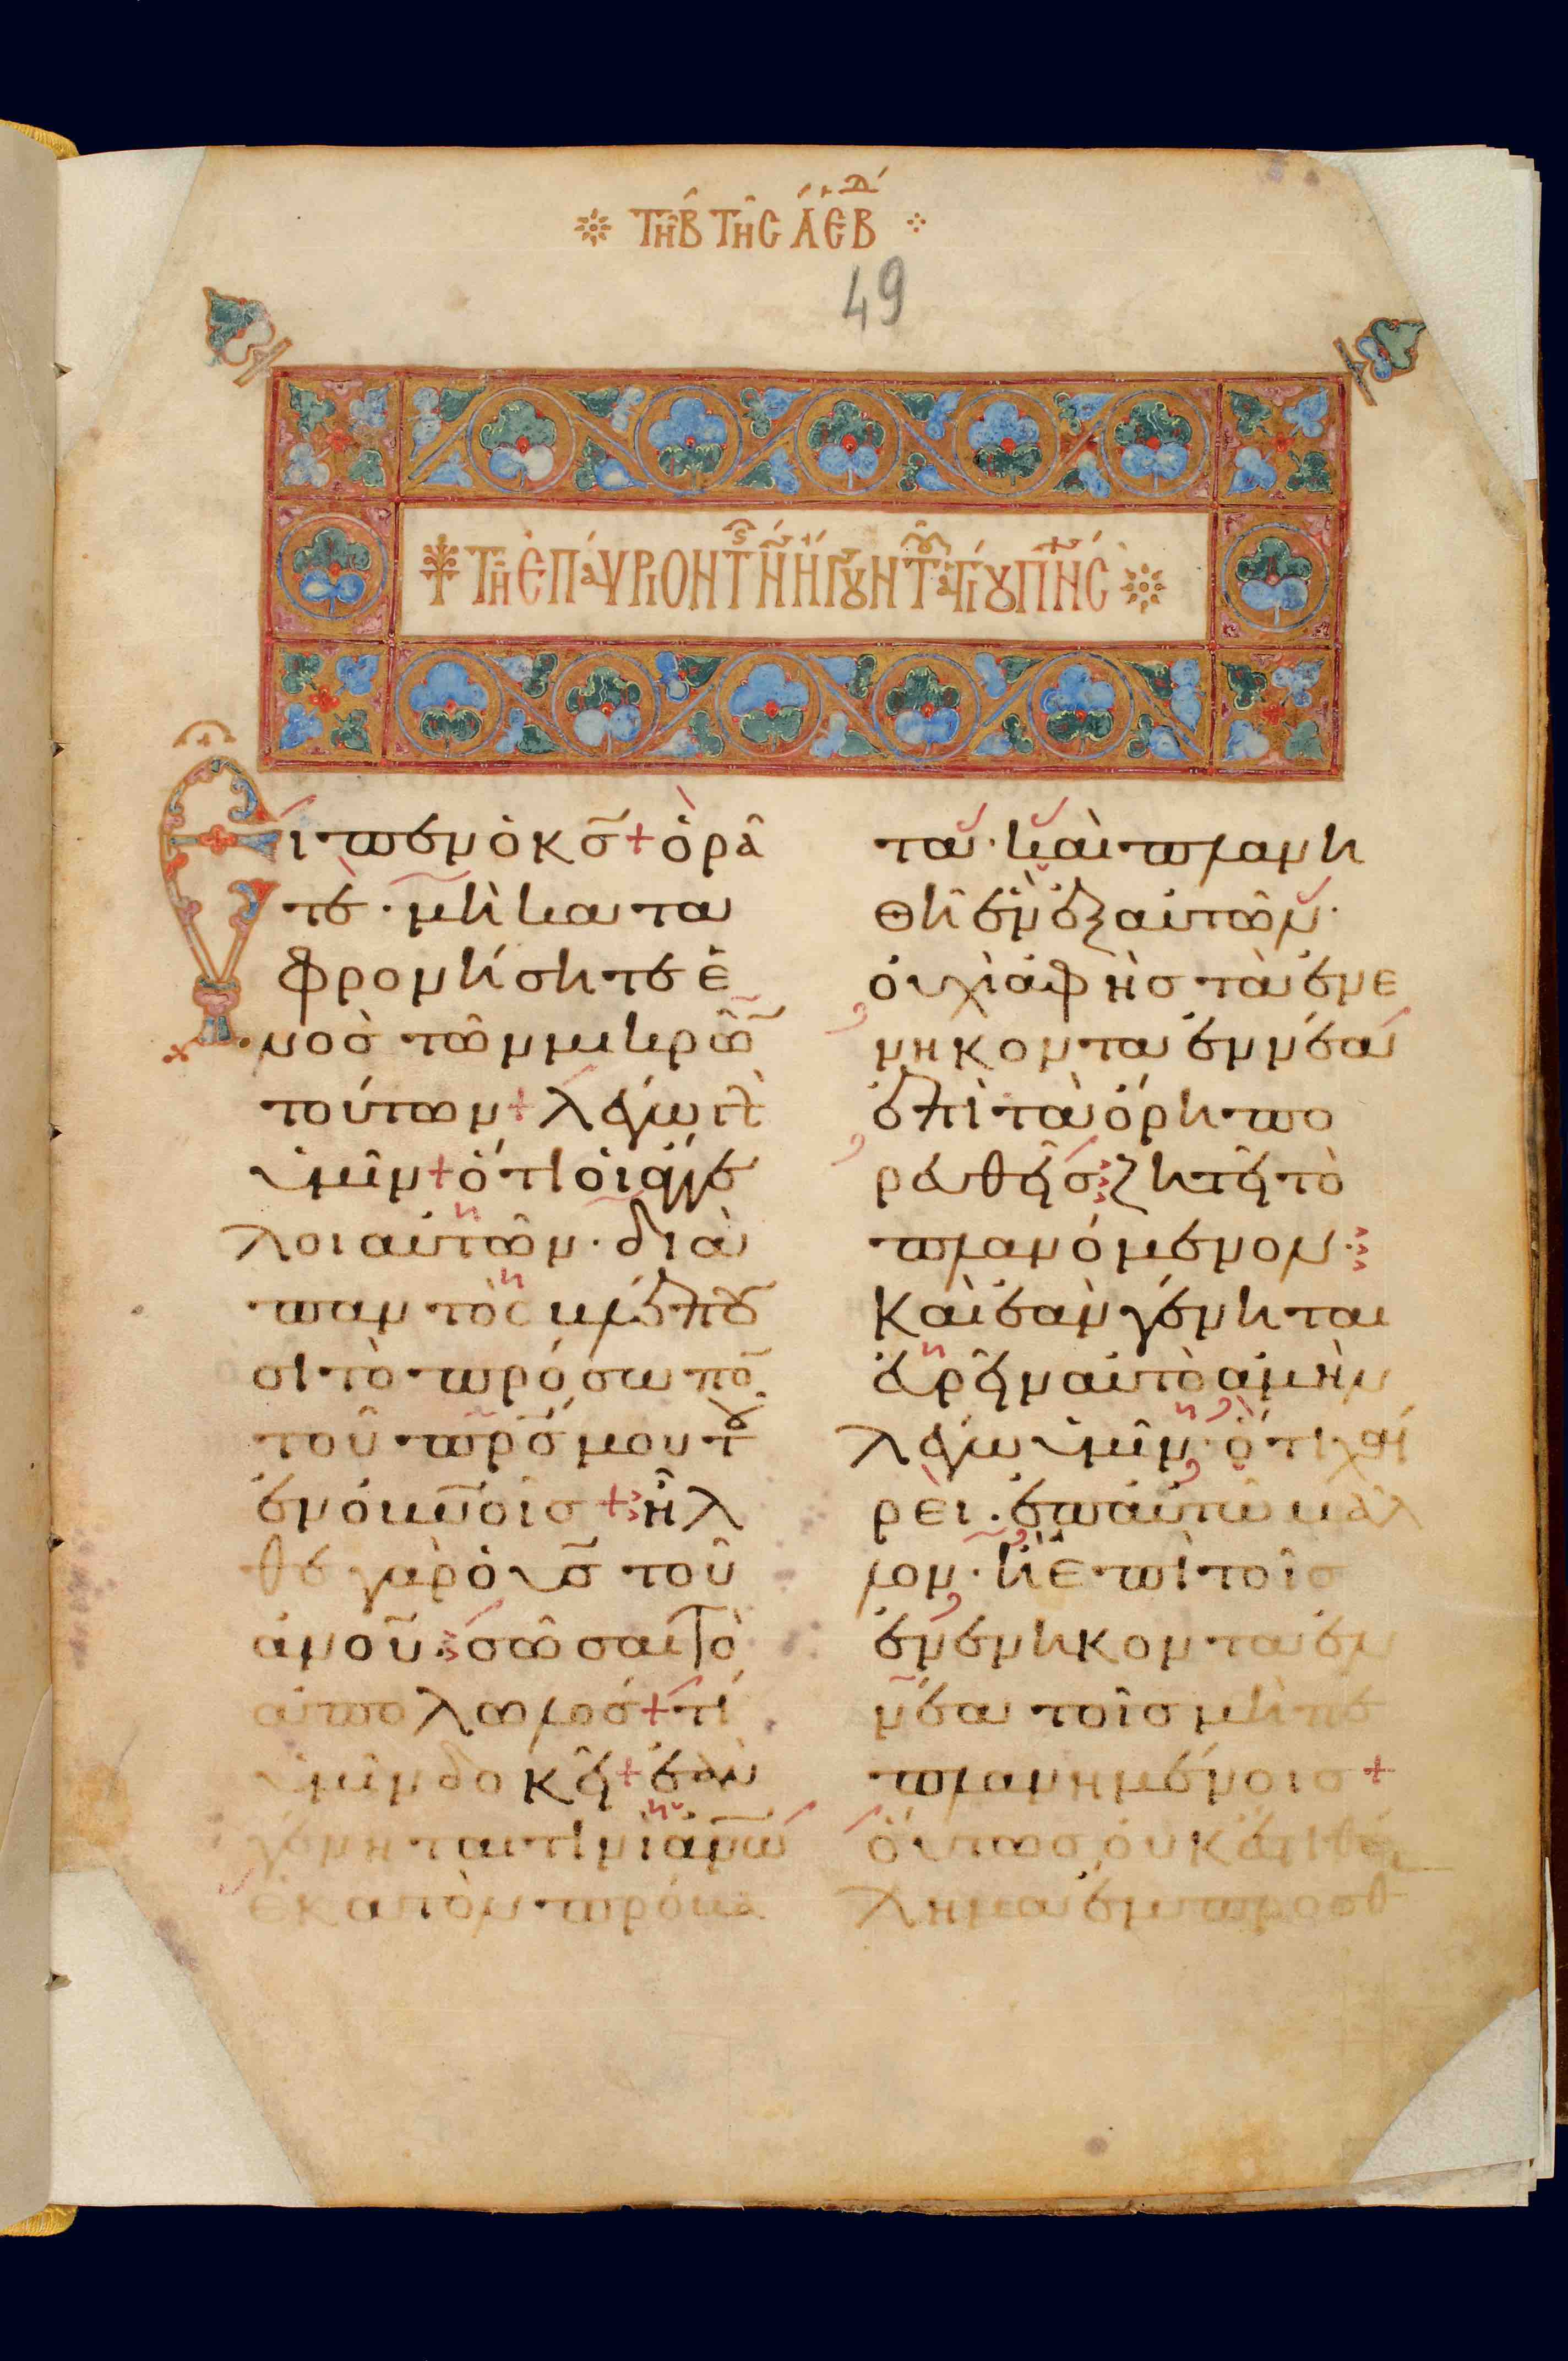 Τῆ Β τῆς Α ἑβδ
49
Τῆ ἐπαύριον τῆς Ν ἤγουν τοῦ ἁγίου πνς
Εἶπεν ὁ κς + ὁρᾶ
τε · μὴ κατα
φρονήσητε ἑ
νὸσ τῶν μικρῶ
τούτων + λέγω γὰρ
ὑμῖν + ὅτι οἱ ἄγγε
λοι αὐτῶν · διὰ
παντὸς βλέπου
σι τὸ πρόσωπο
τοῦ πρσ μου τοῦ
ἐν οὐνοῖσ + ἦλ
θε γὰρ ὁ υσ τοῦ
ἀνου σῶσαι τὸ
ἀπολωλόσ + τί
ὑμῖν δοκεῖ + ἐὰν
γένηται τινι ἀνω
ἑκατὸν πρόβα
τα · καὶ πλανη
θῆ ἓν ἐξ αὐτῶν ·
οὐχὶ ἀφεὶσ τὰ ἐνε
νηκονταεννέα
ἐπὶ τὰ ὄρη πο
ρευθεὶσ ζητεῖ τὸ
πλανόμενον ·
Καὶ ἐὰν γένηται
εὑρεῖν αὐτὸ ἀμὴν
λέγω ὑμῖν · ὅτι χαί
ρει · ἐπ αὐτῶ μᾶλ
λον · ἢ ἐπὶ τοῖσ
ἐνενηκονταεν
νέα τοῖσ μὴ πε
πλανημένοισ +
Οὕτωσ οὐκ ἔστι θέ
λημα ἔμπροσθ